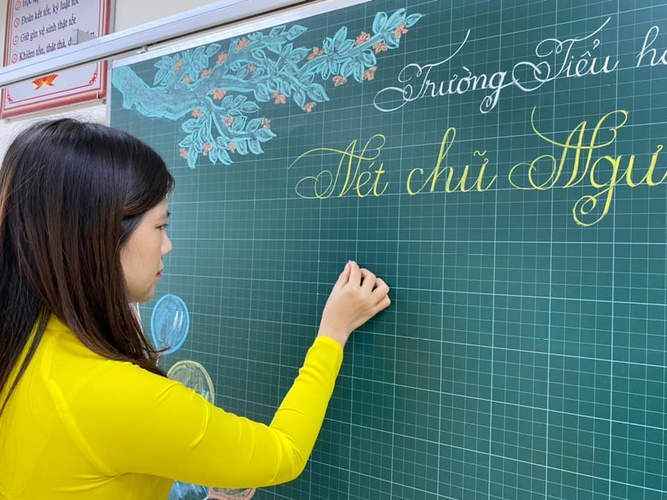 Đoàn kết tốt, kỷ luật tốt
Giữ gìn vệ sinh thật tốt
Khiêm tốn, thật thà, d
Trường Tiểu họ
Nét chữ Ngư